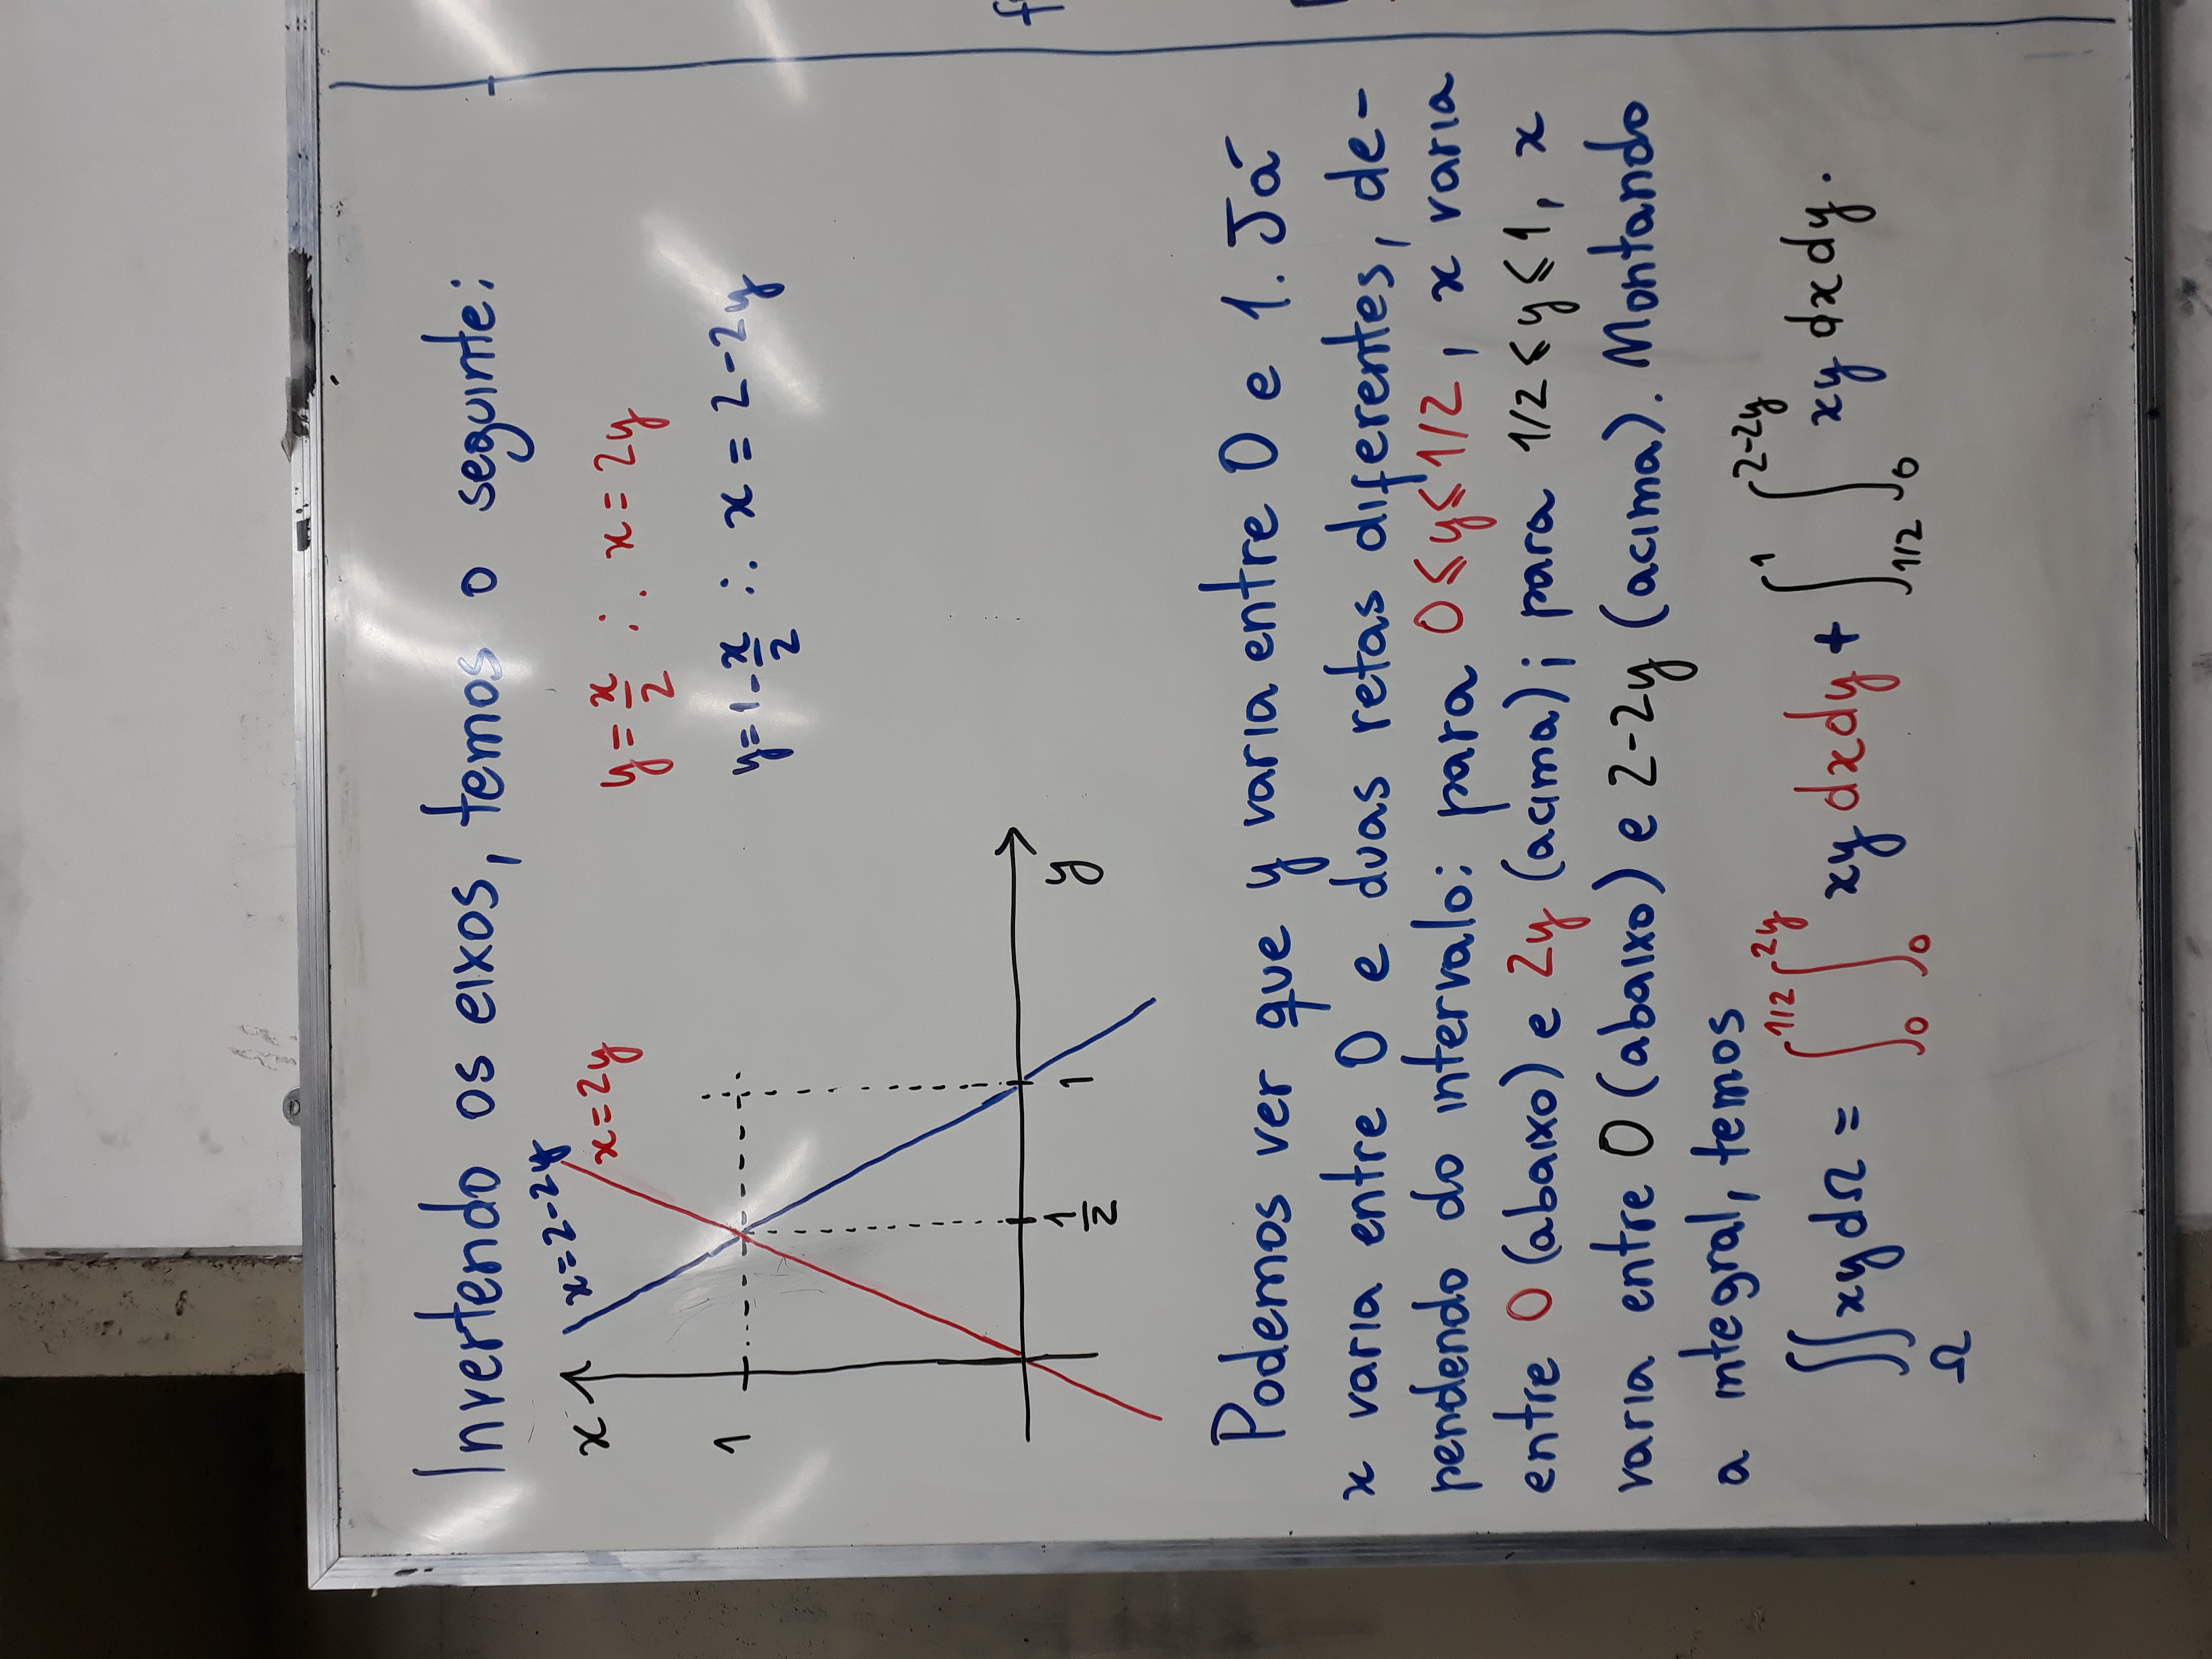 Invertendo os eixos, temos o seguinte:
x
x=2-2y
x=2y
y=x/2 ∴ x=2y
1
y=1-x/2 ∴ x=2-2y
1/2
1
y
Podemos ver que y varia entre 0 e 1. Já
x varia entre 0 e duas retas diferentes, de-
pendendo do intervalo: para 0≤y≤1/2, x varia
entre 0 (abaixo) e 2y (acima); para 1/2≤y≤1, x
varia entre 0 (abaixo) e 2-2y (acima). Montando
a integral, temos
∬_Ω xy dΩ = ∫_0^{1/2} ∫_0^{2y} xy dxdy + ∫_{1/2}^1 ∫_0^{2-2y} xy dx dy.